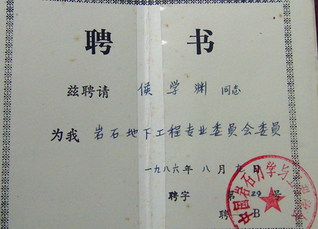 聘书
兹聘请 侯学渊 同志
为我 岩石地下工程专业委员会委员
一九八六年八月 日
聘字 第 29 号
聘 B
中国岩石力学与工